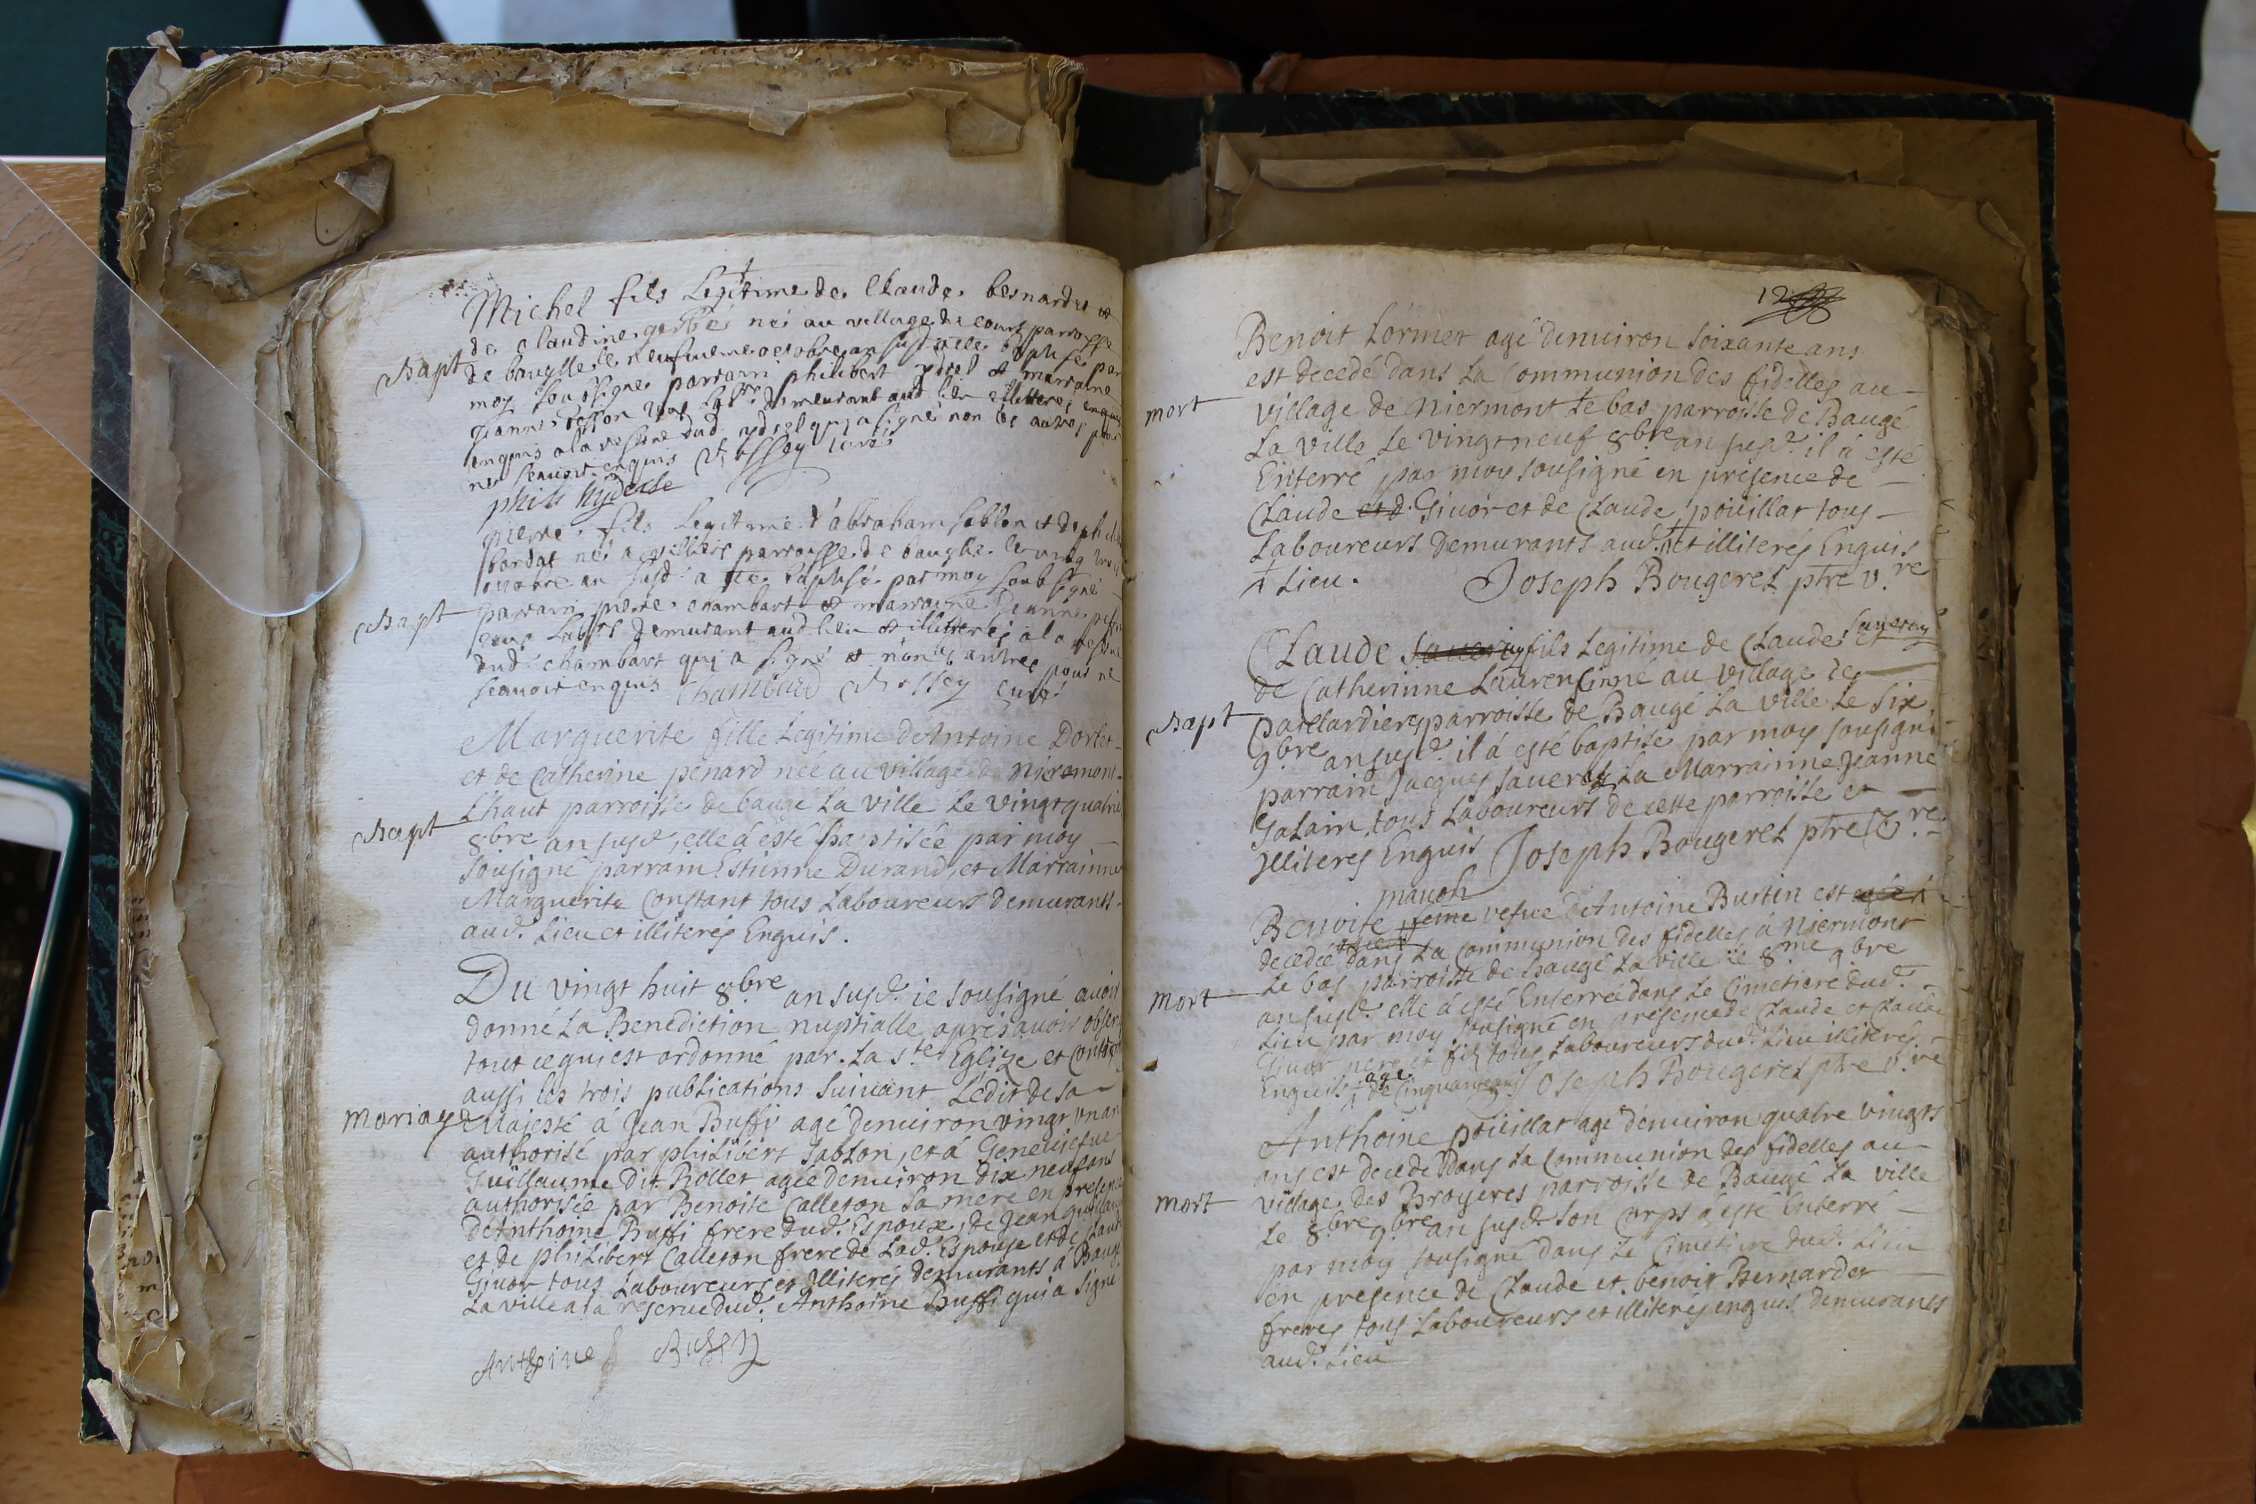 Michel fils Legitime de Claude bernardet et
de claudine né au village de court parroisse
Bapt
de baugé le neufvieme octobre an susd a este baptisé par
moy soubsigné parrain philibert et marraine
Jeanne demeurant aud lieu illiterés enquis
enquis a la reserve dud qui a signé non les autres pour
ne scavoir enquis curé
phili
pierre fils Legitime d'abraham sablon et de
bordat né a parroisse de baugé le vingt
octobre an susd a este baptisé par moy soubsigné
Bapt
parrain pierre chambart et marraine Jeanne
demeurant aud lieu et illiterés a la reserve
dud chambart qui a signé et non les autres pour ne
scavoir enquis Chambard curé
Marguerite fille Légitime de Antoine Dorlet
et de Catherine pénard née au village de Niermont
L'haut parroisse de baugé La ville Le vingt quatrie
Bapt
8bre an susd. elle a esté baptisée par moy
sousigné parrain Estienne Durand, et Marrainne
Marguerite Constant tous Laboureurs demurants
aud. Lieu et illiterés Enquis.
Du vingt huit 8bre an susd. ie sousigné avoir
donné La Benediction nuptialle apres avoir obser
tout ce qui est ordonné par La Ste Eglize et
aussi les trois publications suivant L'édit de sa
Mariage
Majesté á Jean Buffi agé denviron vingt un an
authorisé par philibert Sablon, et á Genevieve
Guillaume dit Piollet agée denviron dix neuf ans
authorisée par Benoite Calleton sa mere en presence
de Anthoine Buffi frere dud. Espoux, de Jean
et de philibert Calleton frere de Lad. Espouse et de Claude
Givor tous Laboureurs et illiterés demurants á Baugé
La ville a La reserve dud. Anthoine Buffi qui a signé
Anthoine Buffy
12
Benoit Lormet agé denviron soixante ans
est decedé dans La Communion des fidelles au
mort
village de Niermont Le bas parroisse de Baugé
La ville Le vingt neuf 8bre an susd. il á esté
Enterré par moy sousigné en présence de
Claude et d. Givor et de Claude poüillat tous
Laboureurs demurants aud. + et illiterés Enquis
+ Lieu. Joseph Bougeret ptre v.re
Claude saveray fils Legitime de Claude saveray et
de Catherinne Laurencin né au village de
Bapt
patelardiere parroisse de Baugé La ville Le six
9bre an susd. il á esté baptisé par moy sousigné
parrain Jacques saveray La Marrainne Jeanne
Galain tous Laboureurs de cette parroisse et
illiteres Enquis Joseph Bougeret ptre v.re
manoh
Benoite veme vefve d'Antoine Burtin est agée á
decedée dans La Communion des fidelles á Niermont
Le bas parroisse de Baugé La ville le 8me 9bre
Mort
an susd. elle á esté Enterrée dans Le Cimetiere dud.
Lieu par moy sousigné en presence de Claude et Claude
Givor pere et fils tous Laboureurs dud. Lieu illiteres
Enquis + agé de Cinquante ans Joseph Bougeret ptre v.re
Anthoine poüillat agé denviron quatre vingts
ans est decedé dans La Communion des fidelles au
mort
village des Broyeres parroisse de Baugé La ville
Le 8bre 9bre an susd. Son Corps á esté Enterré
par moy sousigné dans Le Cimetiere dud. Lieu
en presence de Claude et benoit Bernardet
freres tous Laboureurs et illiterés enquis demurants
aud. Lieu